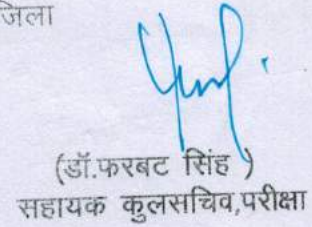 जिला
(डॉ.फरबट सिंह )
सहायक कुलसचिव,परीक्षा